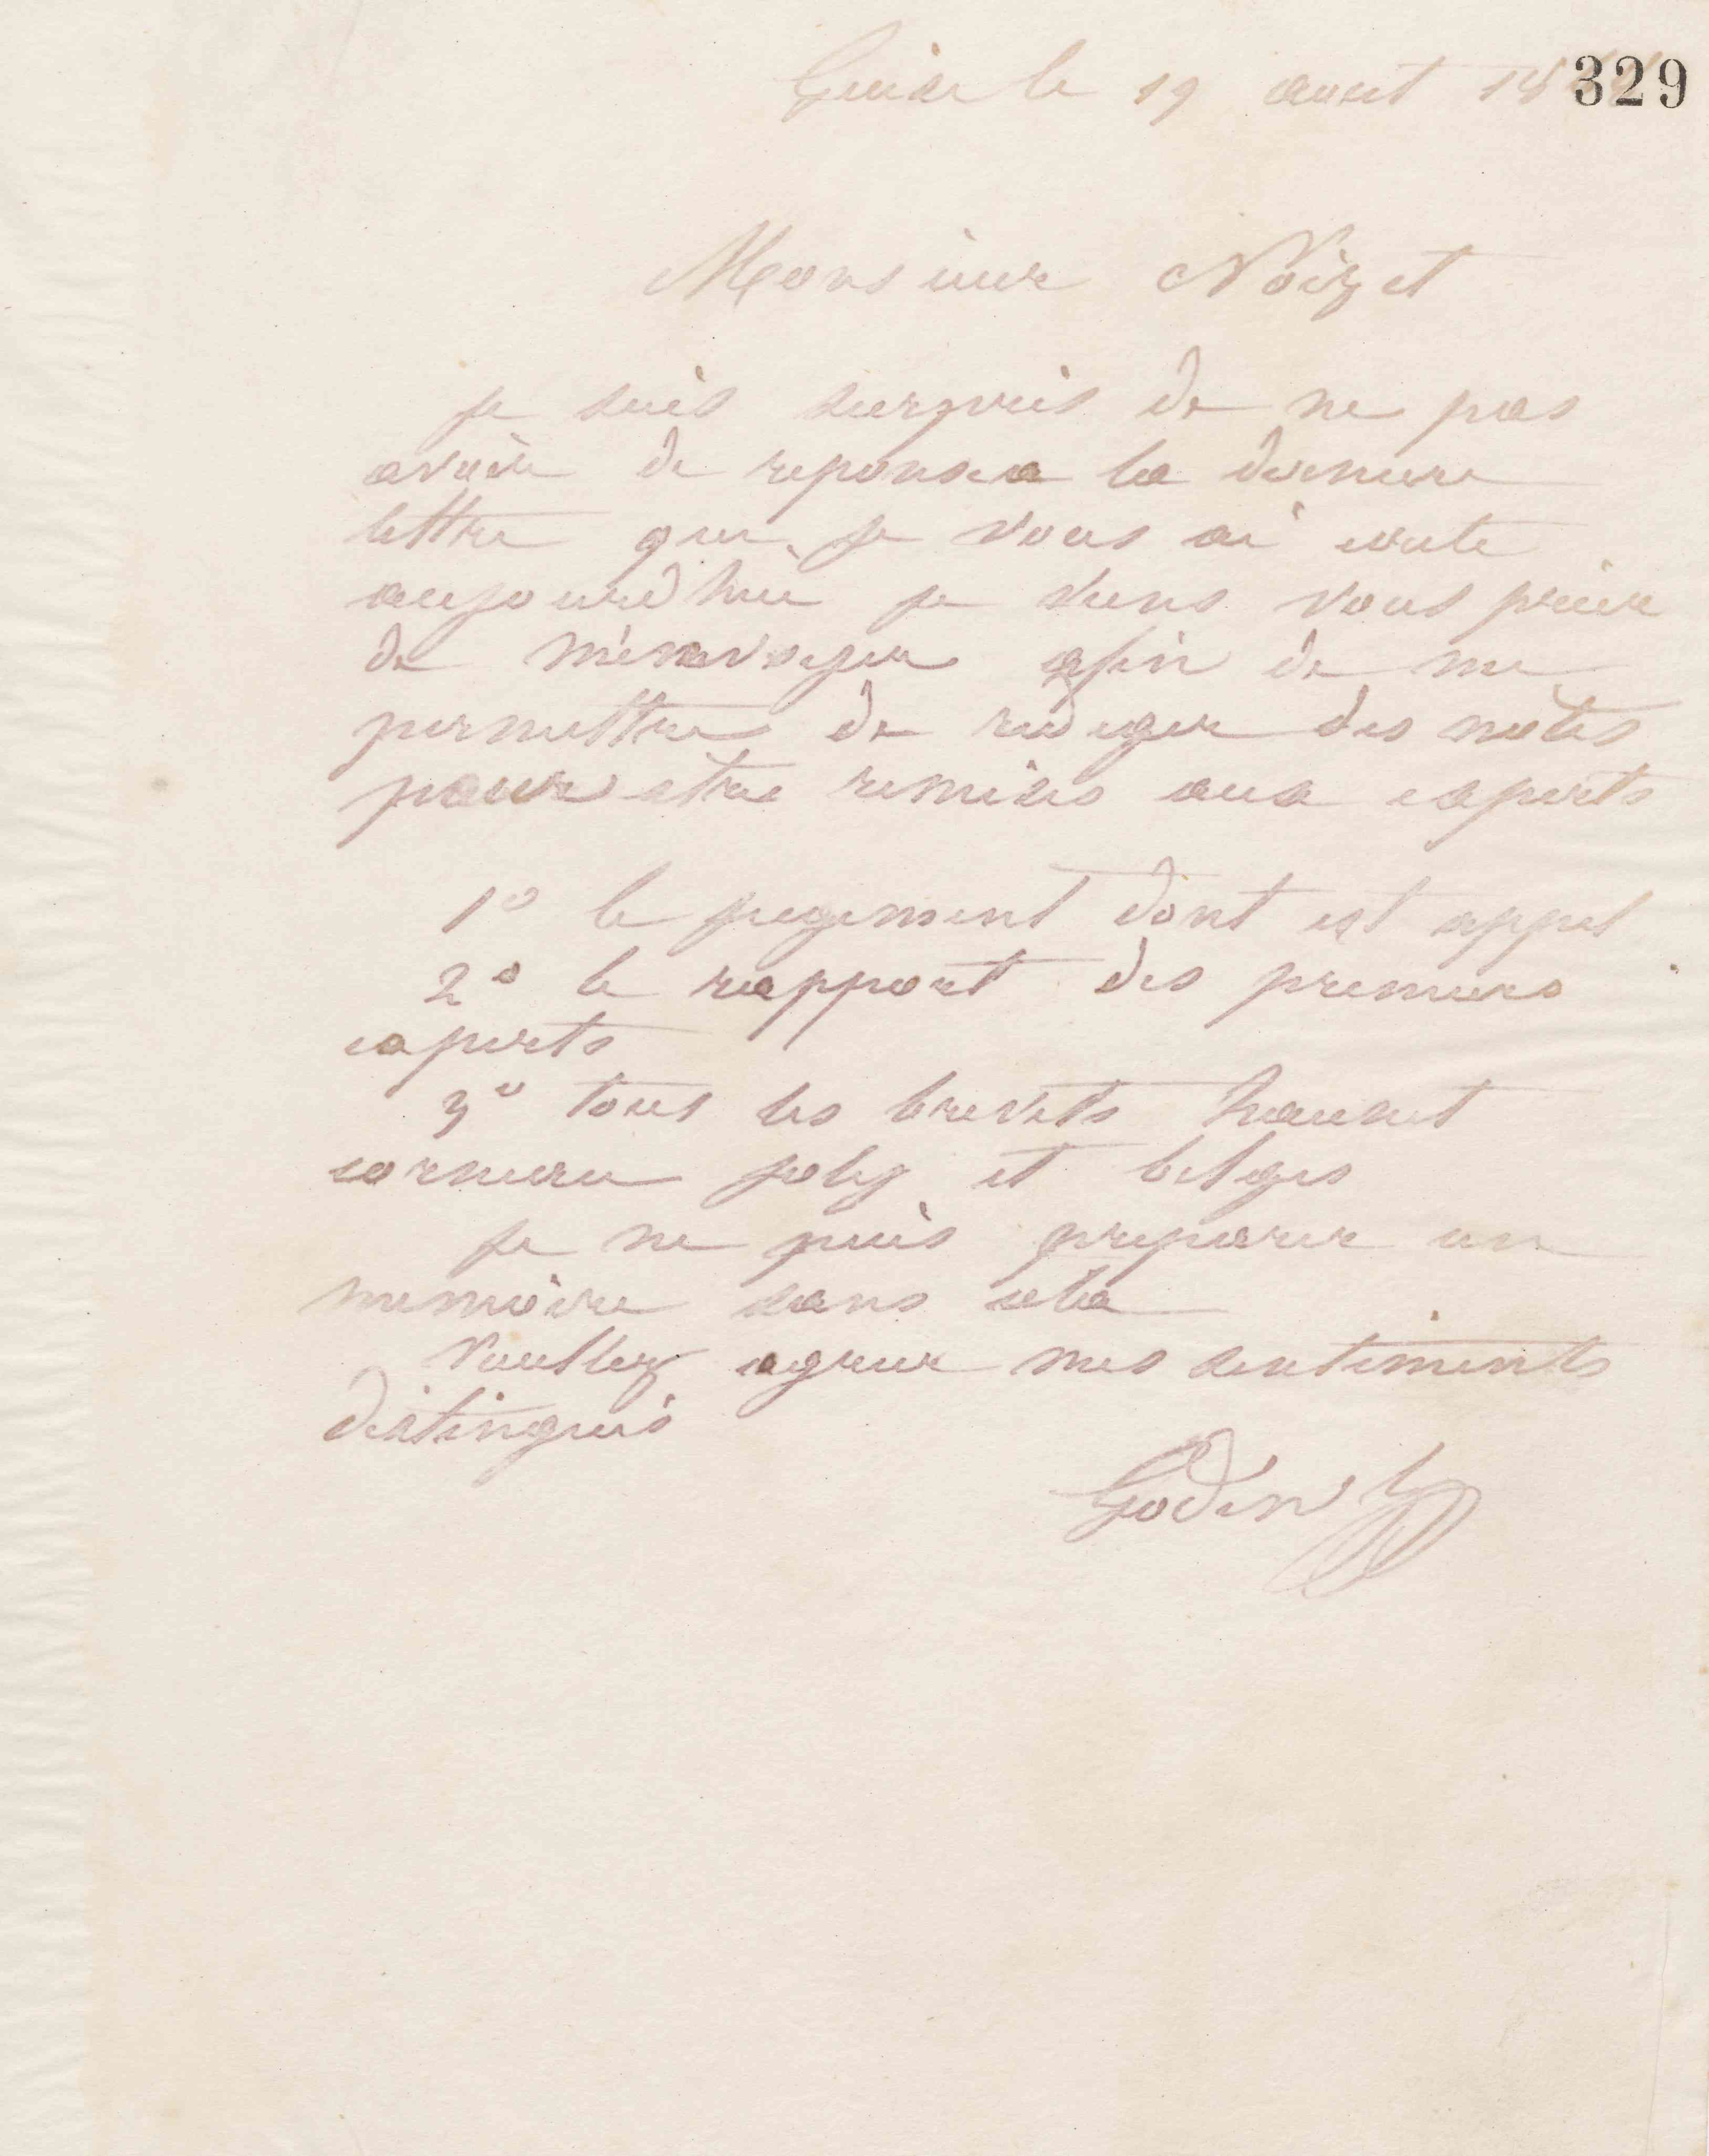 Guise le 19 aout 18
329
Monsieur Noizet
je suis surpris de ne pas
avoir de reponse a la derniere
lettre que je vous ai ecrite
aujourdhui je viens vous prier
de m'envoyer afin de me
permettre de rediger des notes
pour etre remises aux experts
1° le jugement dont est appel
2° le rapport des premiers
experts
3° tous les brevets hauret
corneau joly et belges
je ne puis preparer un
memoire sans cela
Veuillez agreer mes sentiments
distingués
Godin